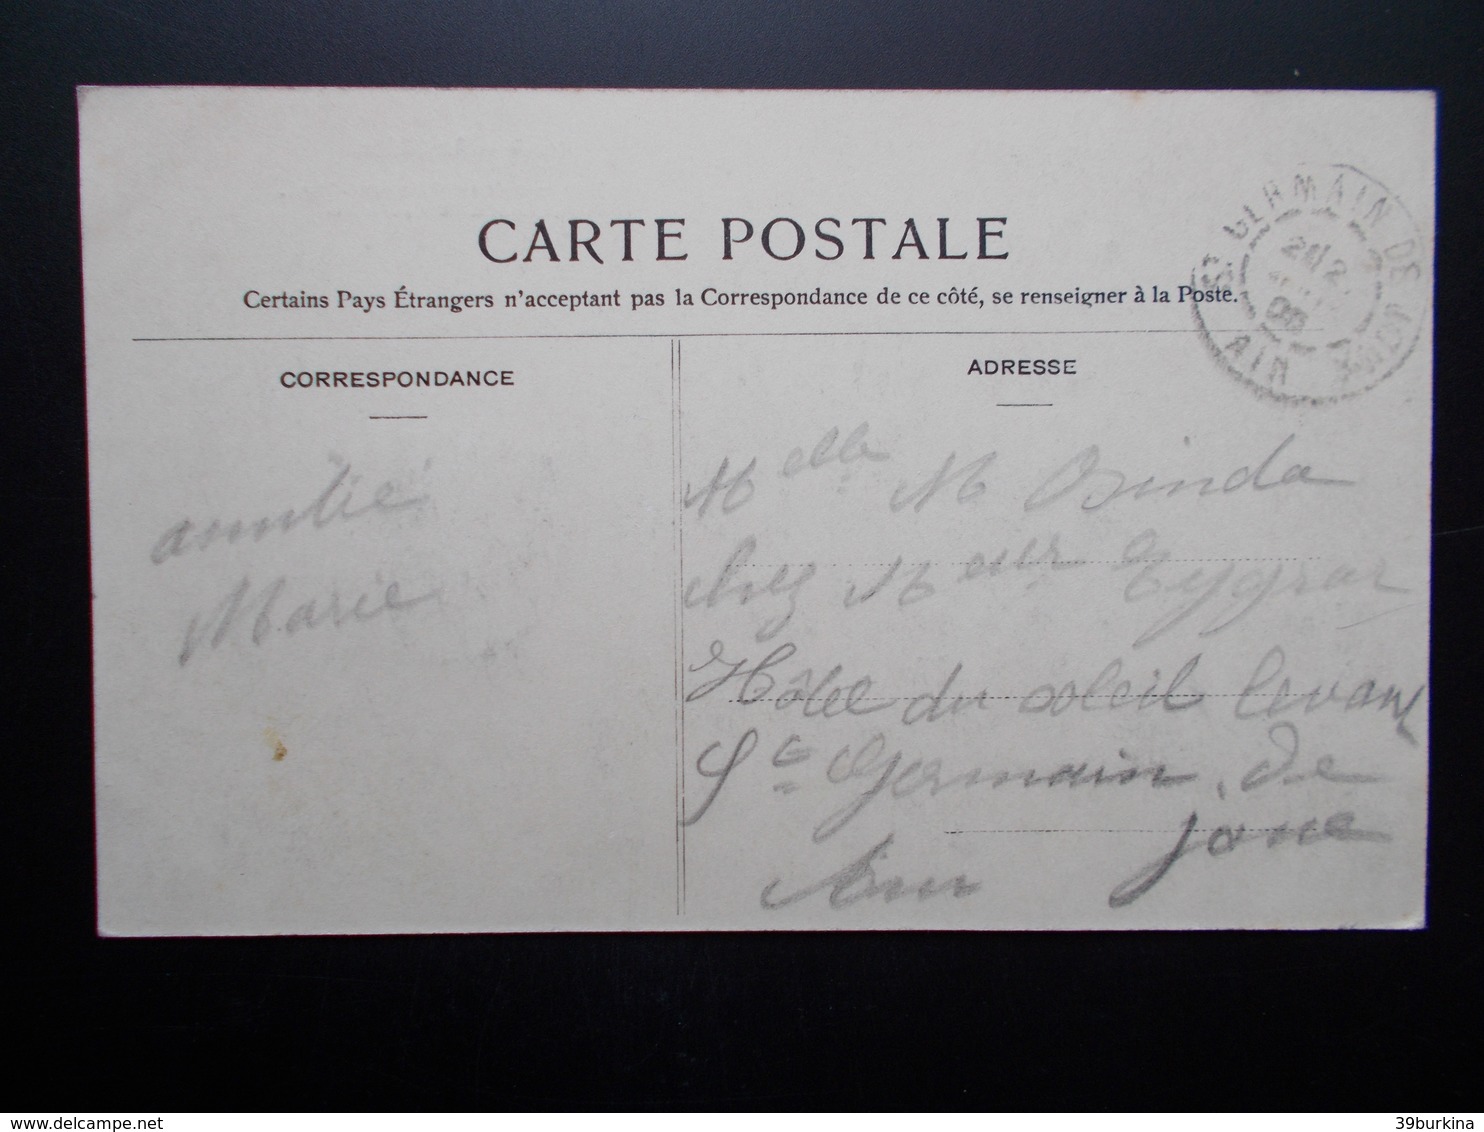 CARTE POSTALE
Certains Pays Étrangers n'acceptant pas la Correspondance de ce côté, se renseigner à la Poste.
CORRESPONDANCE
amitié
Marie
ADRESSE
Melle M Binda
chez Meur Eygraz
Hôtel du soleil levant
St Germain de
Joue
Ain
ST GERMAIN DE JOUX
AIN
www.delcampe.net
39burkina